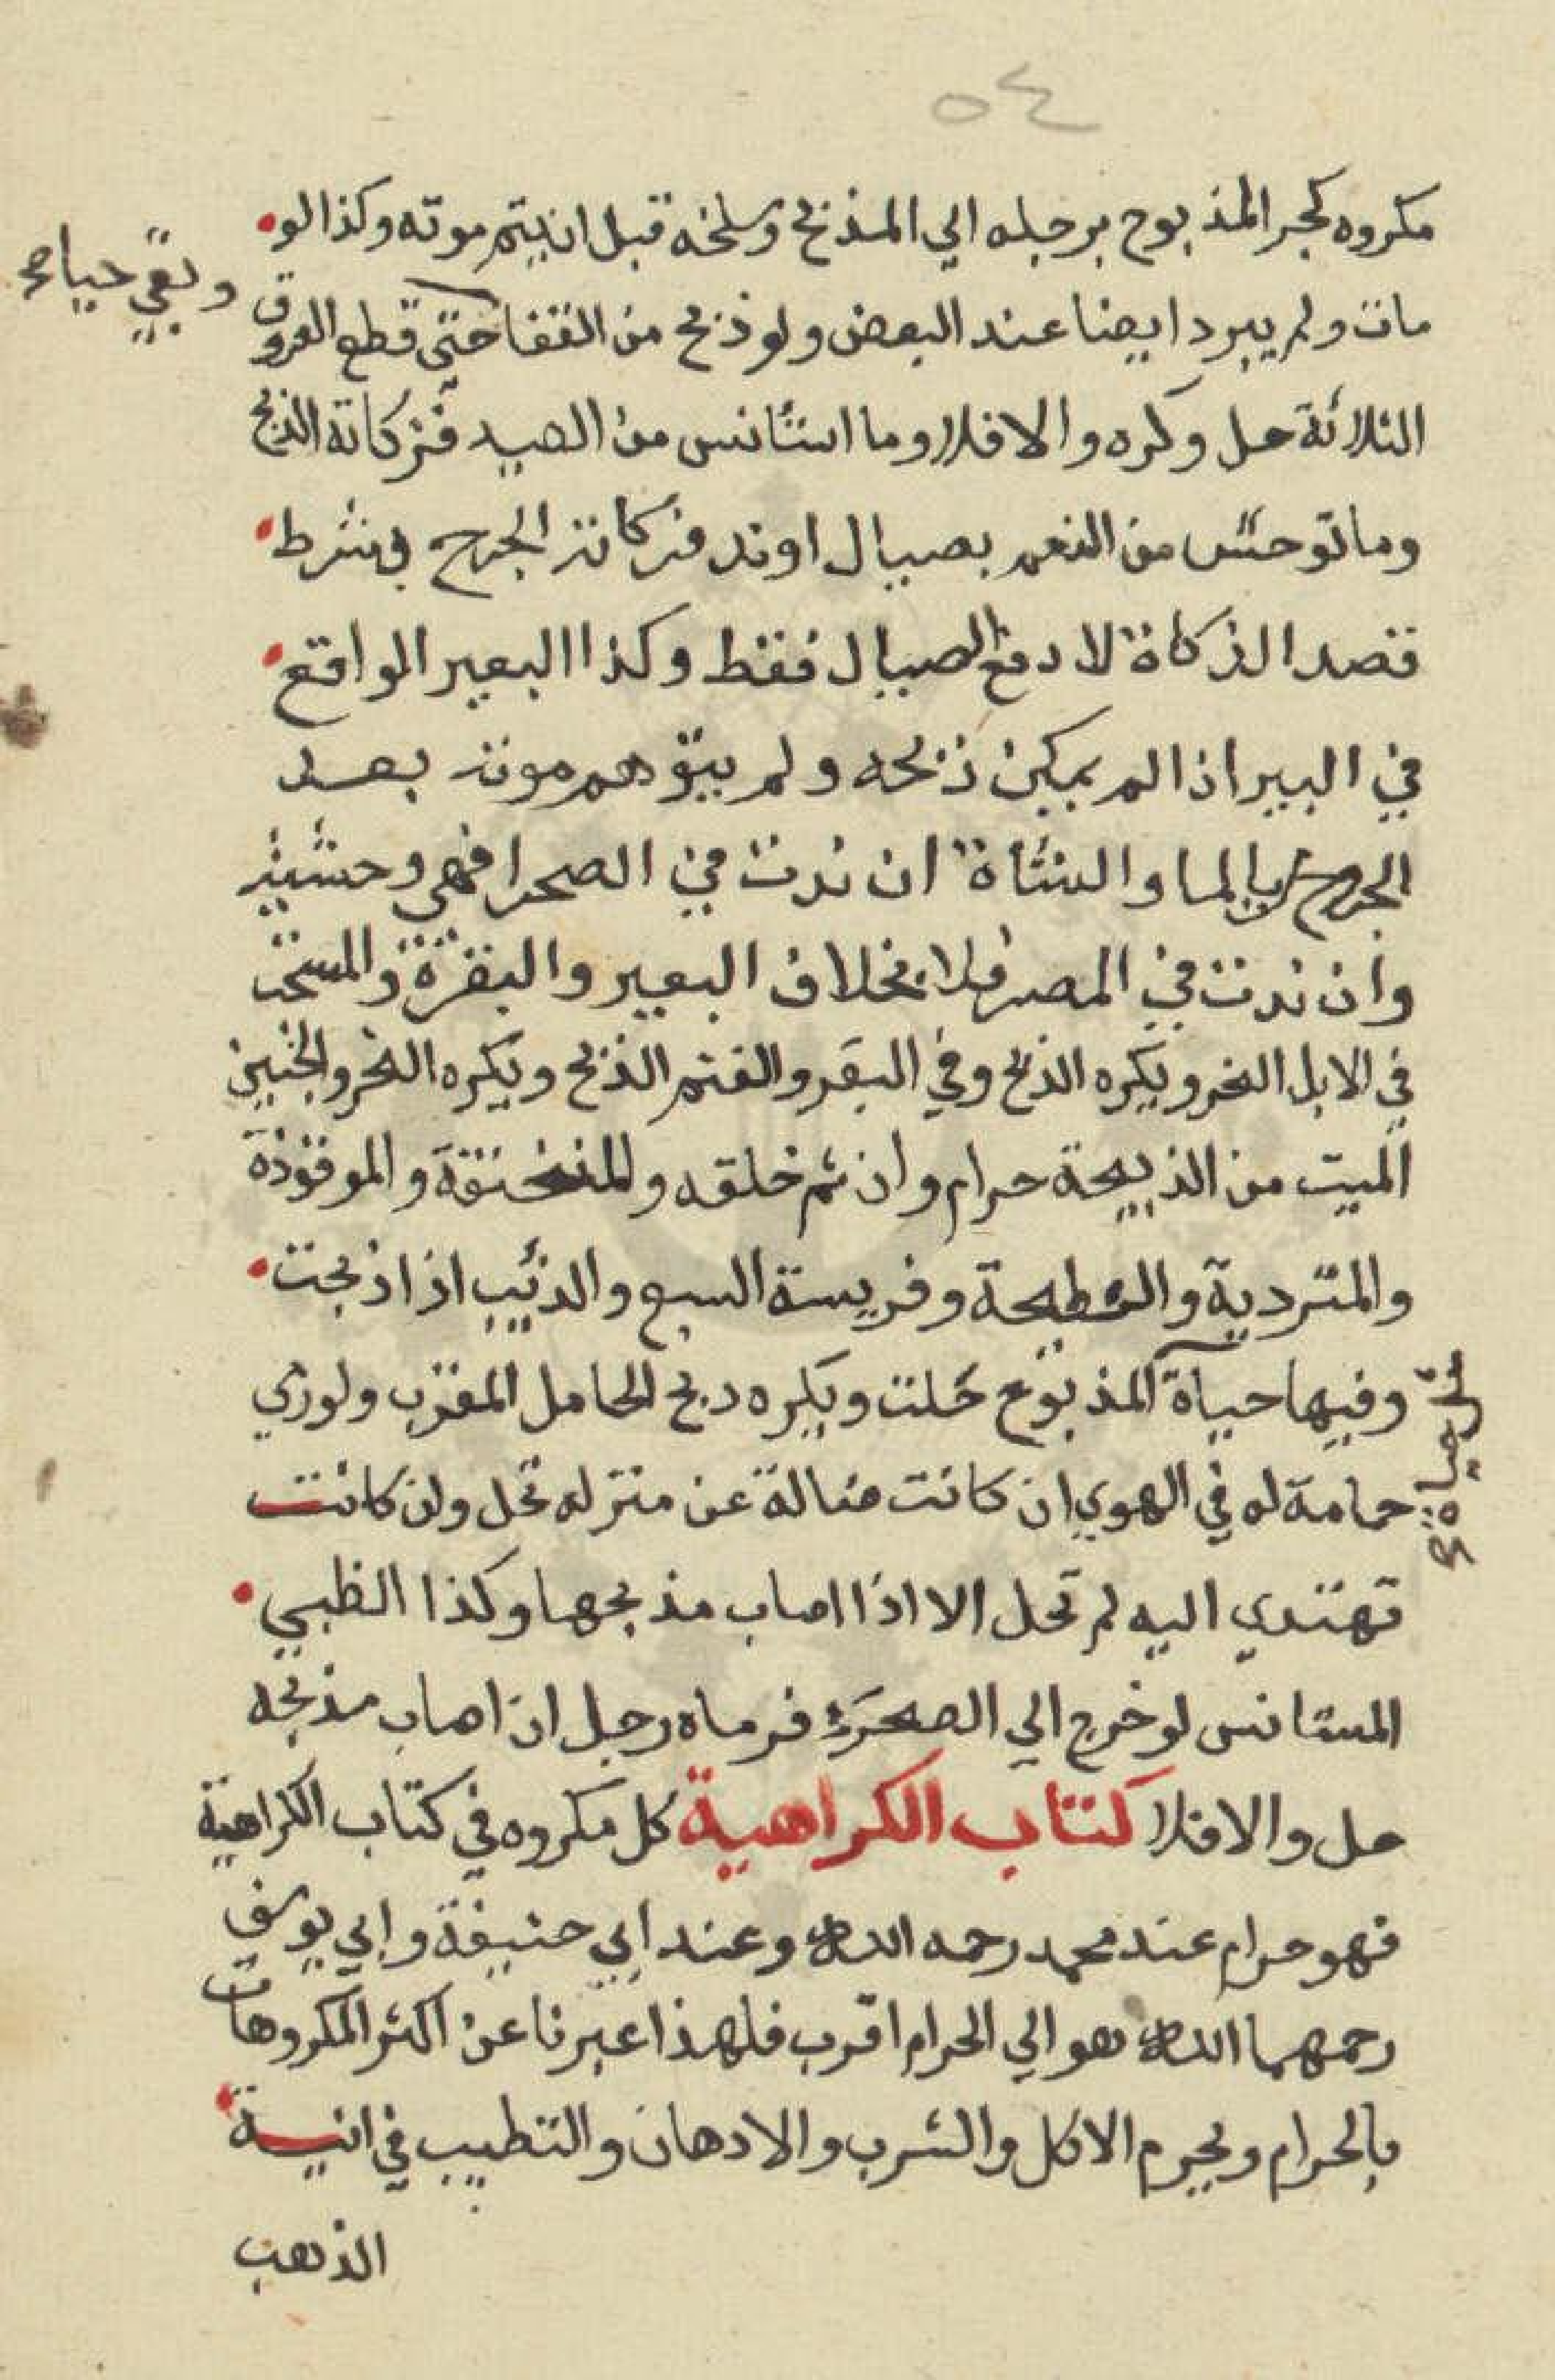 ٥٤
مكروه كجر المذبوح برجله الي المذبح وسلخه قبل ان يتم موته وكذا لو
وبقي حيا صح
مات ولم يبرد ايضا عند البعض ولو ذبح من القفا حتى قطع العروق
الثلاثة حل وكره والا فلا وما استأنس من الصيد فزكاته الذبح
وما توحش من النعم بصيال او ند فزكاته الجرح بشرط
قصد الذكاة لا دفع الصيال فقط وكذا البعير الواقع
في البير اذا لم يمكن ذبحه ولم يتوهم موته بعد
الجرح بالما والشاة ان ندت في الصحرا فهي وحشية
وان ندت في المصر فلا بخلاف البعير والبقرة والمستحب
في الابل النحر ويكره الذبح وفي البقر والغنم الذبح ويكره النحر والجنين
الميت من الذبيحة حرام وان تم خلقه والمنخنقة والموقوذة
والمتردية والنطيحة وفريسة السبع والذئيب اذا ذبحت
وفيها حياة المذبوع حلت ويكره ذبح الحامل المقرب ولو رمي
حمامة له في الهوي ان كانت ضالة عن منزله تحل وان كانت
تهتدي اليه لم تحل الا اذا اصاب مذبحها وكذا الظبي
المستانس لو خرج الي الصحرء فرماه رجل ان اصاب مذبحه
حل والا فلا كتاب الكراهية كل مكروه في كتاب الكراهية
فهو حرام عند محمد رحمه الله وعند ابي حنيفة وابي يوسف
رحمهما الله هو الي الحرام اقرب فلهذا عبرنا عن اكثر المكروهات
بالحرام ويحرم الاكل والشرب والادهان والتطييب في انية
الذهب